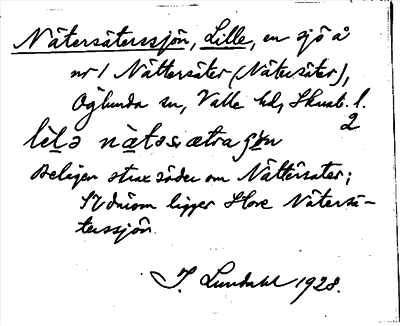 Nätersäterssjön, Lille, en sjö å
nr 1 Nättersäter (Nätersäter),
Öglunda sn, Valle hd, Skarab. l.
2
lilə nätəsætra
Belägen strax söder om Nättersäter;
SV därom ligger Store Nätersä-
terssjön.
J. Lundahl 1928.